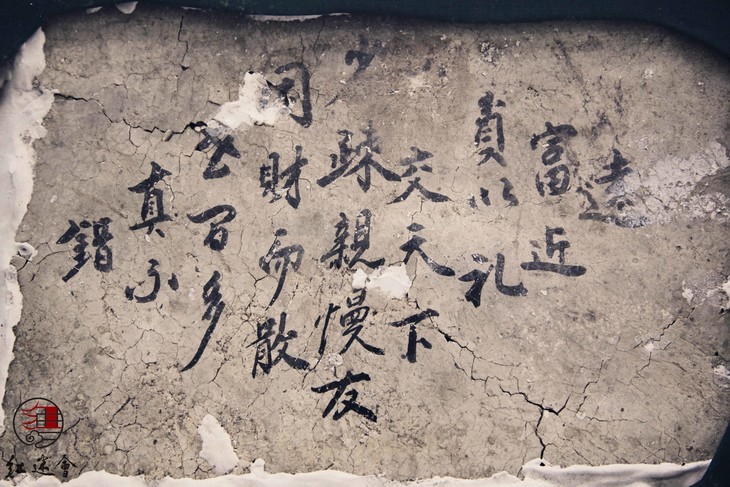 遠
富近
貴以礼
交天下
少疎親慢友
財而散
百多
真不
錯
紅途會